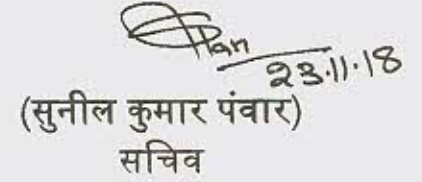 23.11.18
(सुनील कुमार पंवार)
सचिव